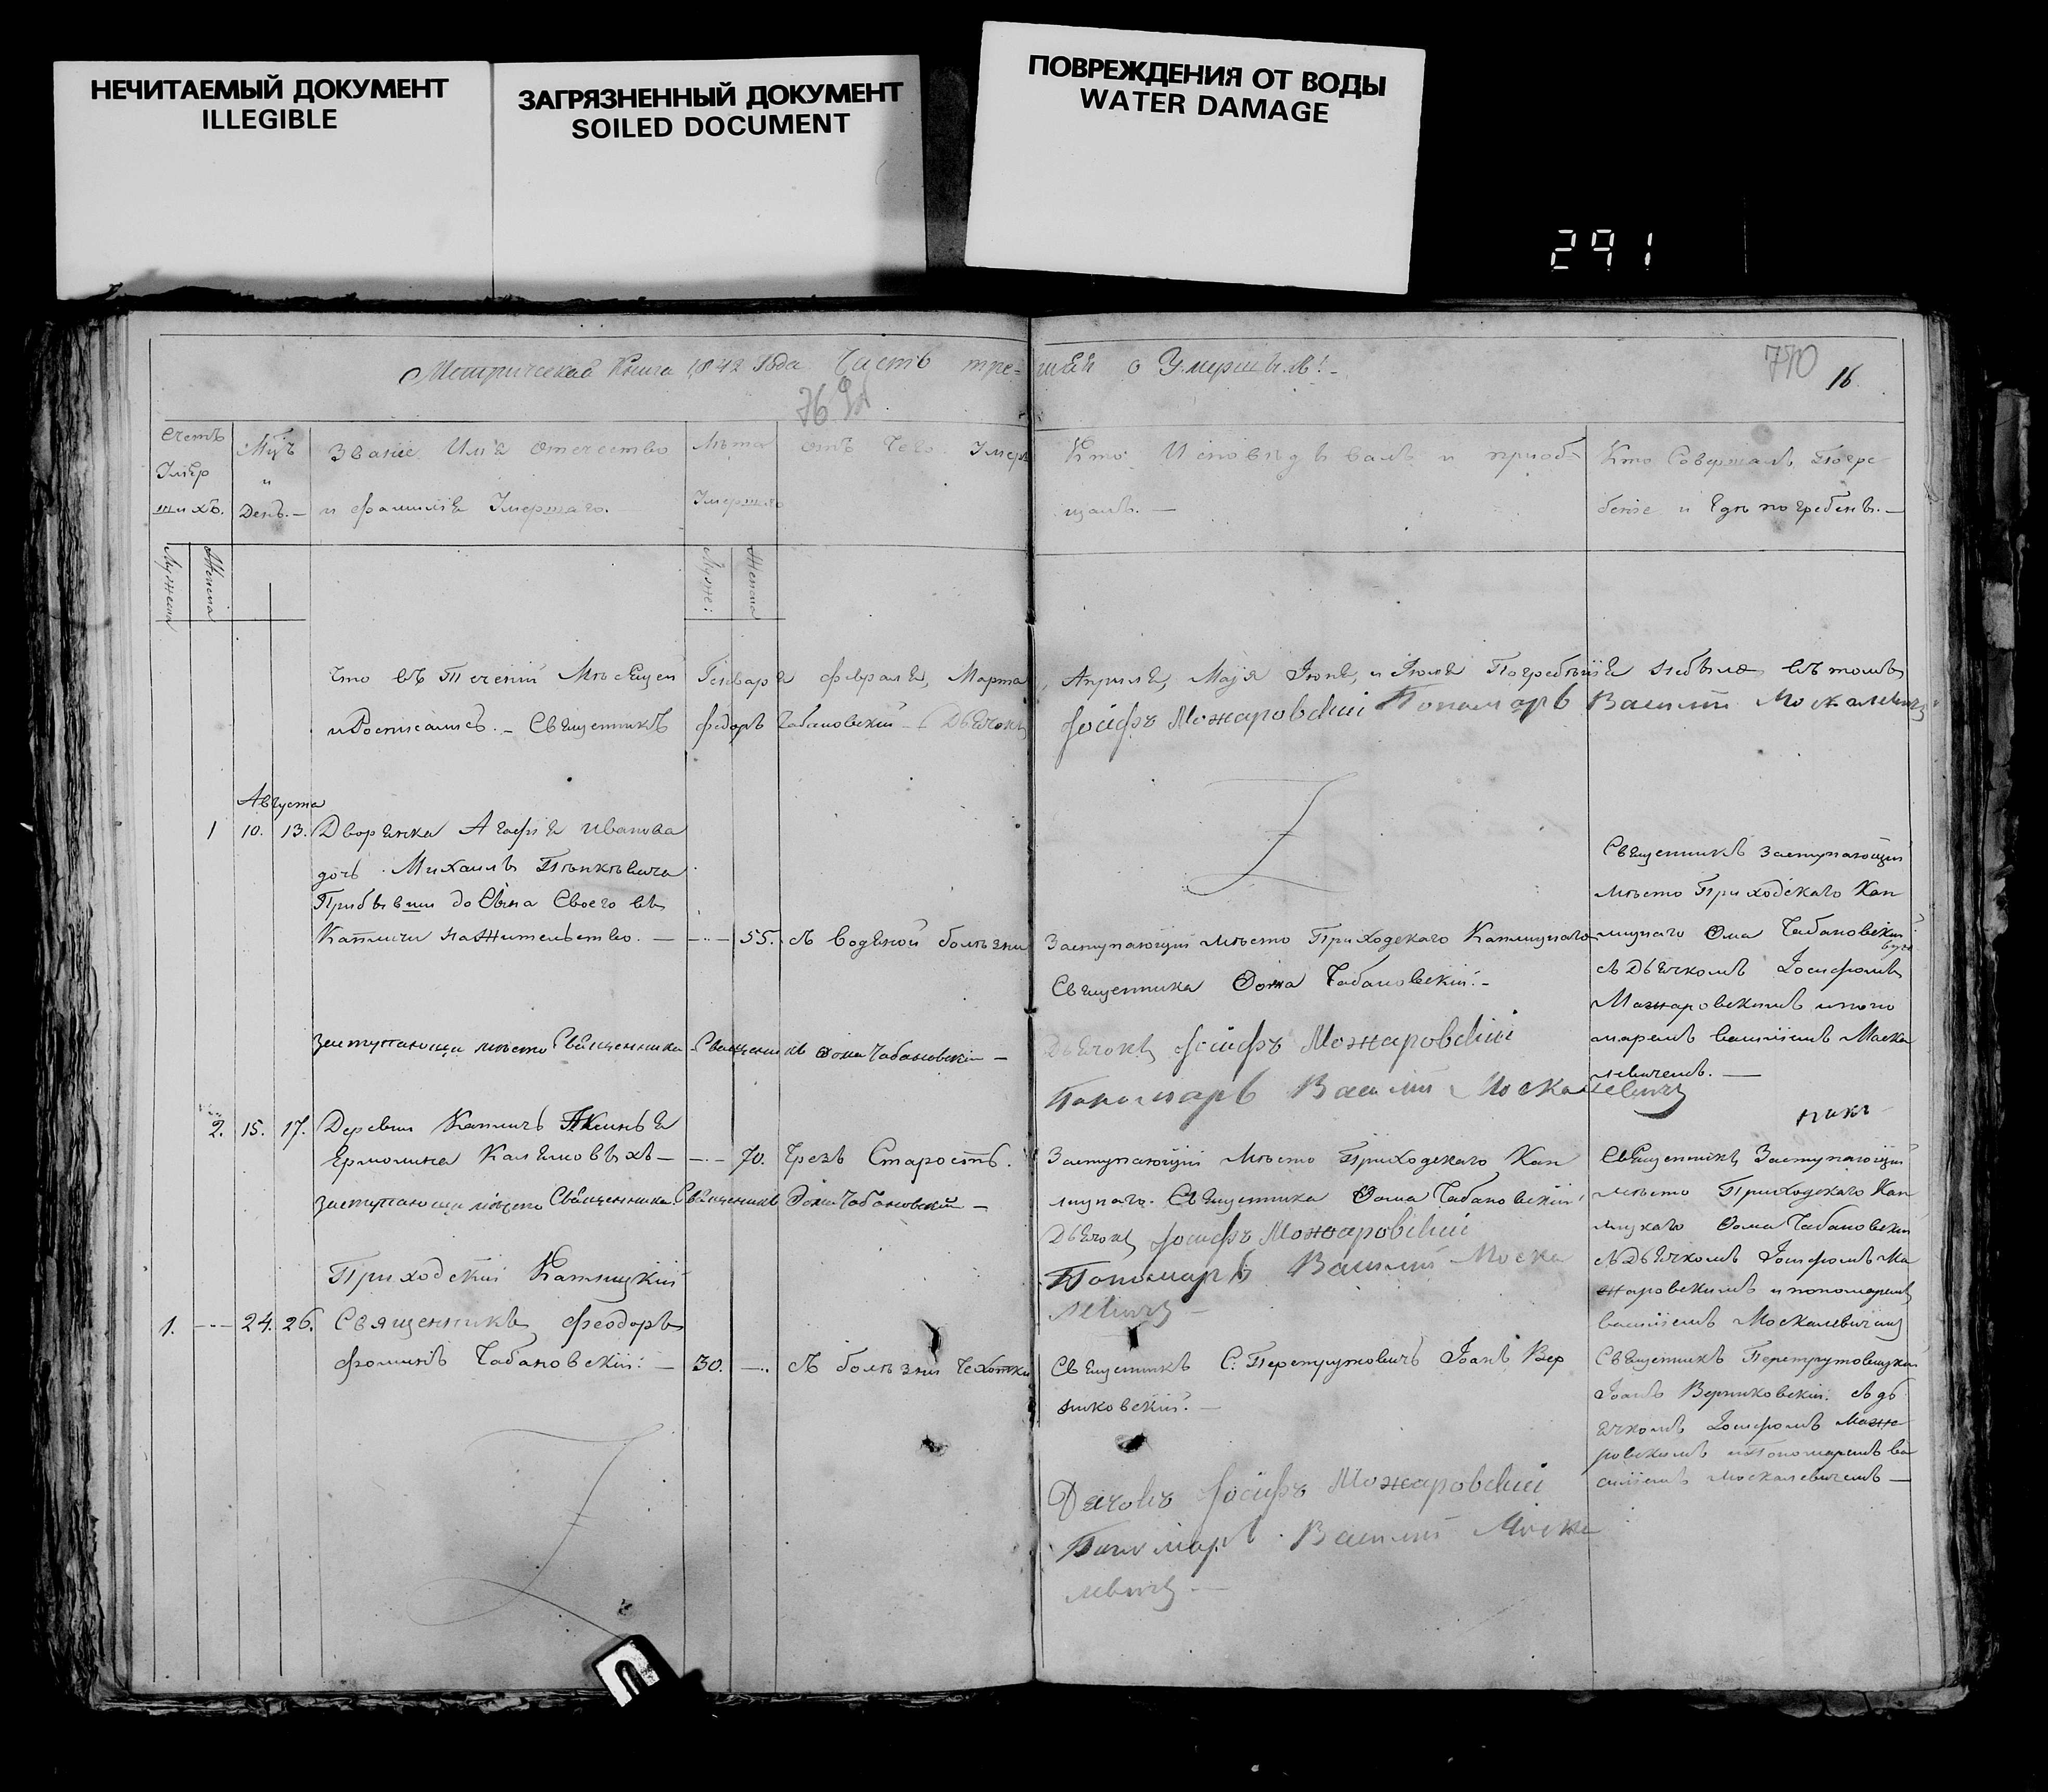 НЕЧИТАЕМЫЙ ДОКУМЕНТ
ILLEGIBLE
ЗАГРЯЗНЕННЫЙ ДОКУМЕНТ
SOILED DOCUMENT
ПОВРЕЖДЕНИЯ ОТ ВОДЫ
WATER DAMAGE
291
Метрическая Книга 1842 Года Часть тре- тия о Умершыхъ
770 16.
Счетъ Умер шихъ.
Мцъ и День.
Званіе Имя отечество и фамилія Умершаго.
Лѣта Умершаго
отъ Чего Умеръ
Кто Исповѣдывалъ и приоб- щалъ. —
Кто Совершалъ Погре беніе и Гдѣ погребенъ. —
Мужеска
Женска
Муже:
Женска
Что въ Теченіи Мѣсяцеи Генваря февраля, Марта, Апрѣля, Маія Іюня, и Іюля Погребенія небыло въ томъ
иРосписались. — Священникъ федоръ Чабановскій — Дьячокъ Іосифъ Можаровскій Пономарь Василій Москалевичъ
Августа
1 10. 13. Дворянка Агафія иванова
дочь Михаилъ
Прибывши до Сына Своего въ
Катличи наЖительство. — 55. съ водяной болѣзни
Заступающій мѣсто Приходскаго
Священника Фома Чабановскій. —
Священникъ заступающій
мѣсто Приходскаго
Фома Чабановскій
съ Дьячкомъ Іосифомъ
Можаровскимъ ипоно
маремъ василіемъ Моска
левичемъ. —
заступающи мѣсто Священника Священикъ Фома Чабановскій —
Дьячокъ Іосифъ Можаровскій
Пономарь Василій Москалевичъ
2. 15. 17. Деревни
Ермолина — 70. Чрезъ Старость.
Заступающій Мѣсто Приходскаго
Священника Фома Чабановскій
Священникъ Заступающій
мѣсто Приходскаго
Фома Чабановскій
съДьячкомъ Іосифомъ Мо
жаровскимъ и пономаремъ
василіемъ Москалевичемъ
заступающи мѣсто Священника Священникъ Фома Чабановскій —
Дьячокъ Іосифъ Можаровскій
Пономарь Василій Моска
левичъ —
Приходскій
1. 24. 26. Священникъ Феодоръ
фоминъ Чабановскій: — 30. съ болѣзни Чехотки
Священникъ Іоанъ Вер
никовскій. —
Священникъ
Іоанъ Верниковскій съ дь
ячкомъ Іосифомъ Можа
ровскимъ иПономаремъ ва
силіемъ москалевичемъ —
Дячокъ Іосифъ Можаровскій
Пономарь Василій Моска
левичъ —